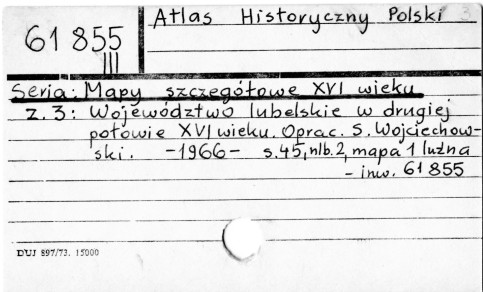 Atlas Historyczny Polski
61 855
III
Seria: Mapy szczegółowe XVI wieku
z. 3: Województwo lubelskie w drugiej
połowie XVI wieku. Oprac. S. Wojciechow-
ski. -1966- s.45, nlb.2, mapa 1 luźna
- inw. 61 855
DUJ 897/73. 15000